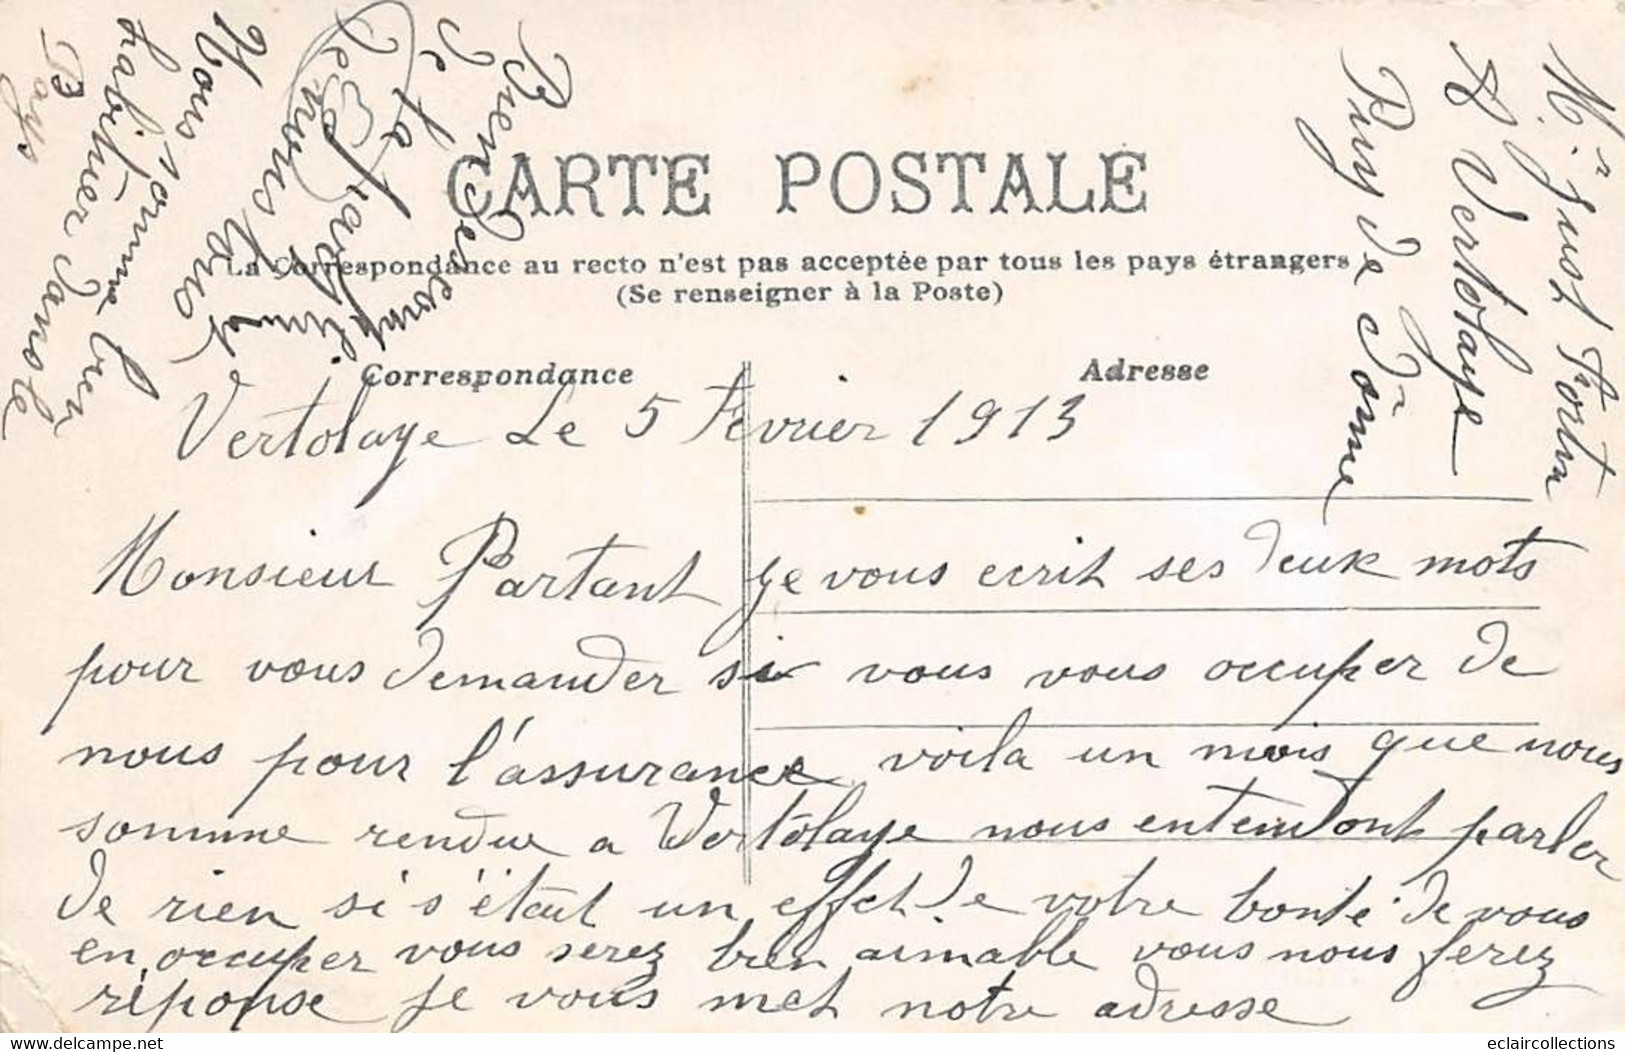 CARTE POSTALE
La Correspondance au recto n'est pas acceptée par tous les pays étrangers
(Se renseigner à la Poste)
Correspondance
Adresse
Vertolaye Le 5 Fevrier 1913
Monsieur Partant je vous ecrit ses deux mots
pour vous demander si vous vous occuper de
nous pour l'assurance voila un mois que nous
somme rendue a Vertolaye nous entendont parler
de rien si s'étaut un effet de votre bonte de vous
en occuper vous serez bien aimable vous nous ferez
réponse je vous met notre adresse
Mr Just Fortin
A Vertolaye
Puy de Dôme
Bien des
de la
de
nous tous
Nous
habituer dans le
Pays